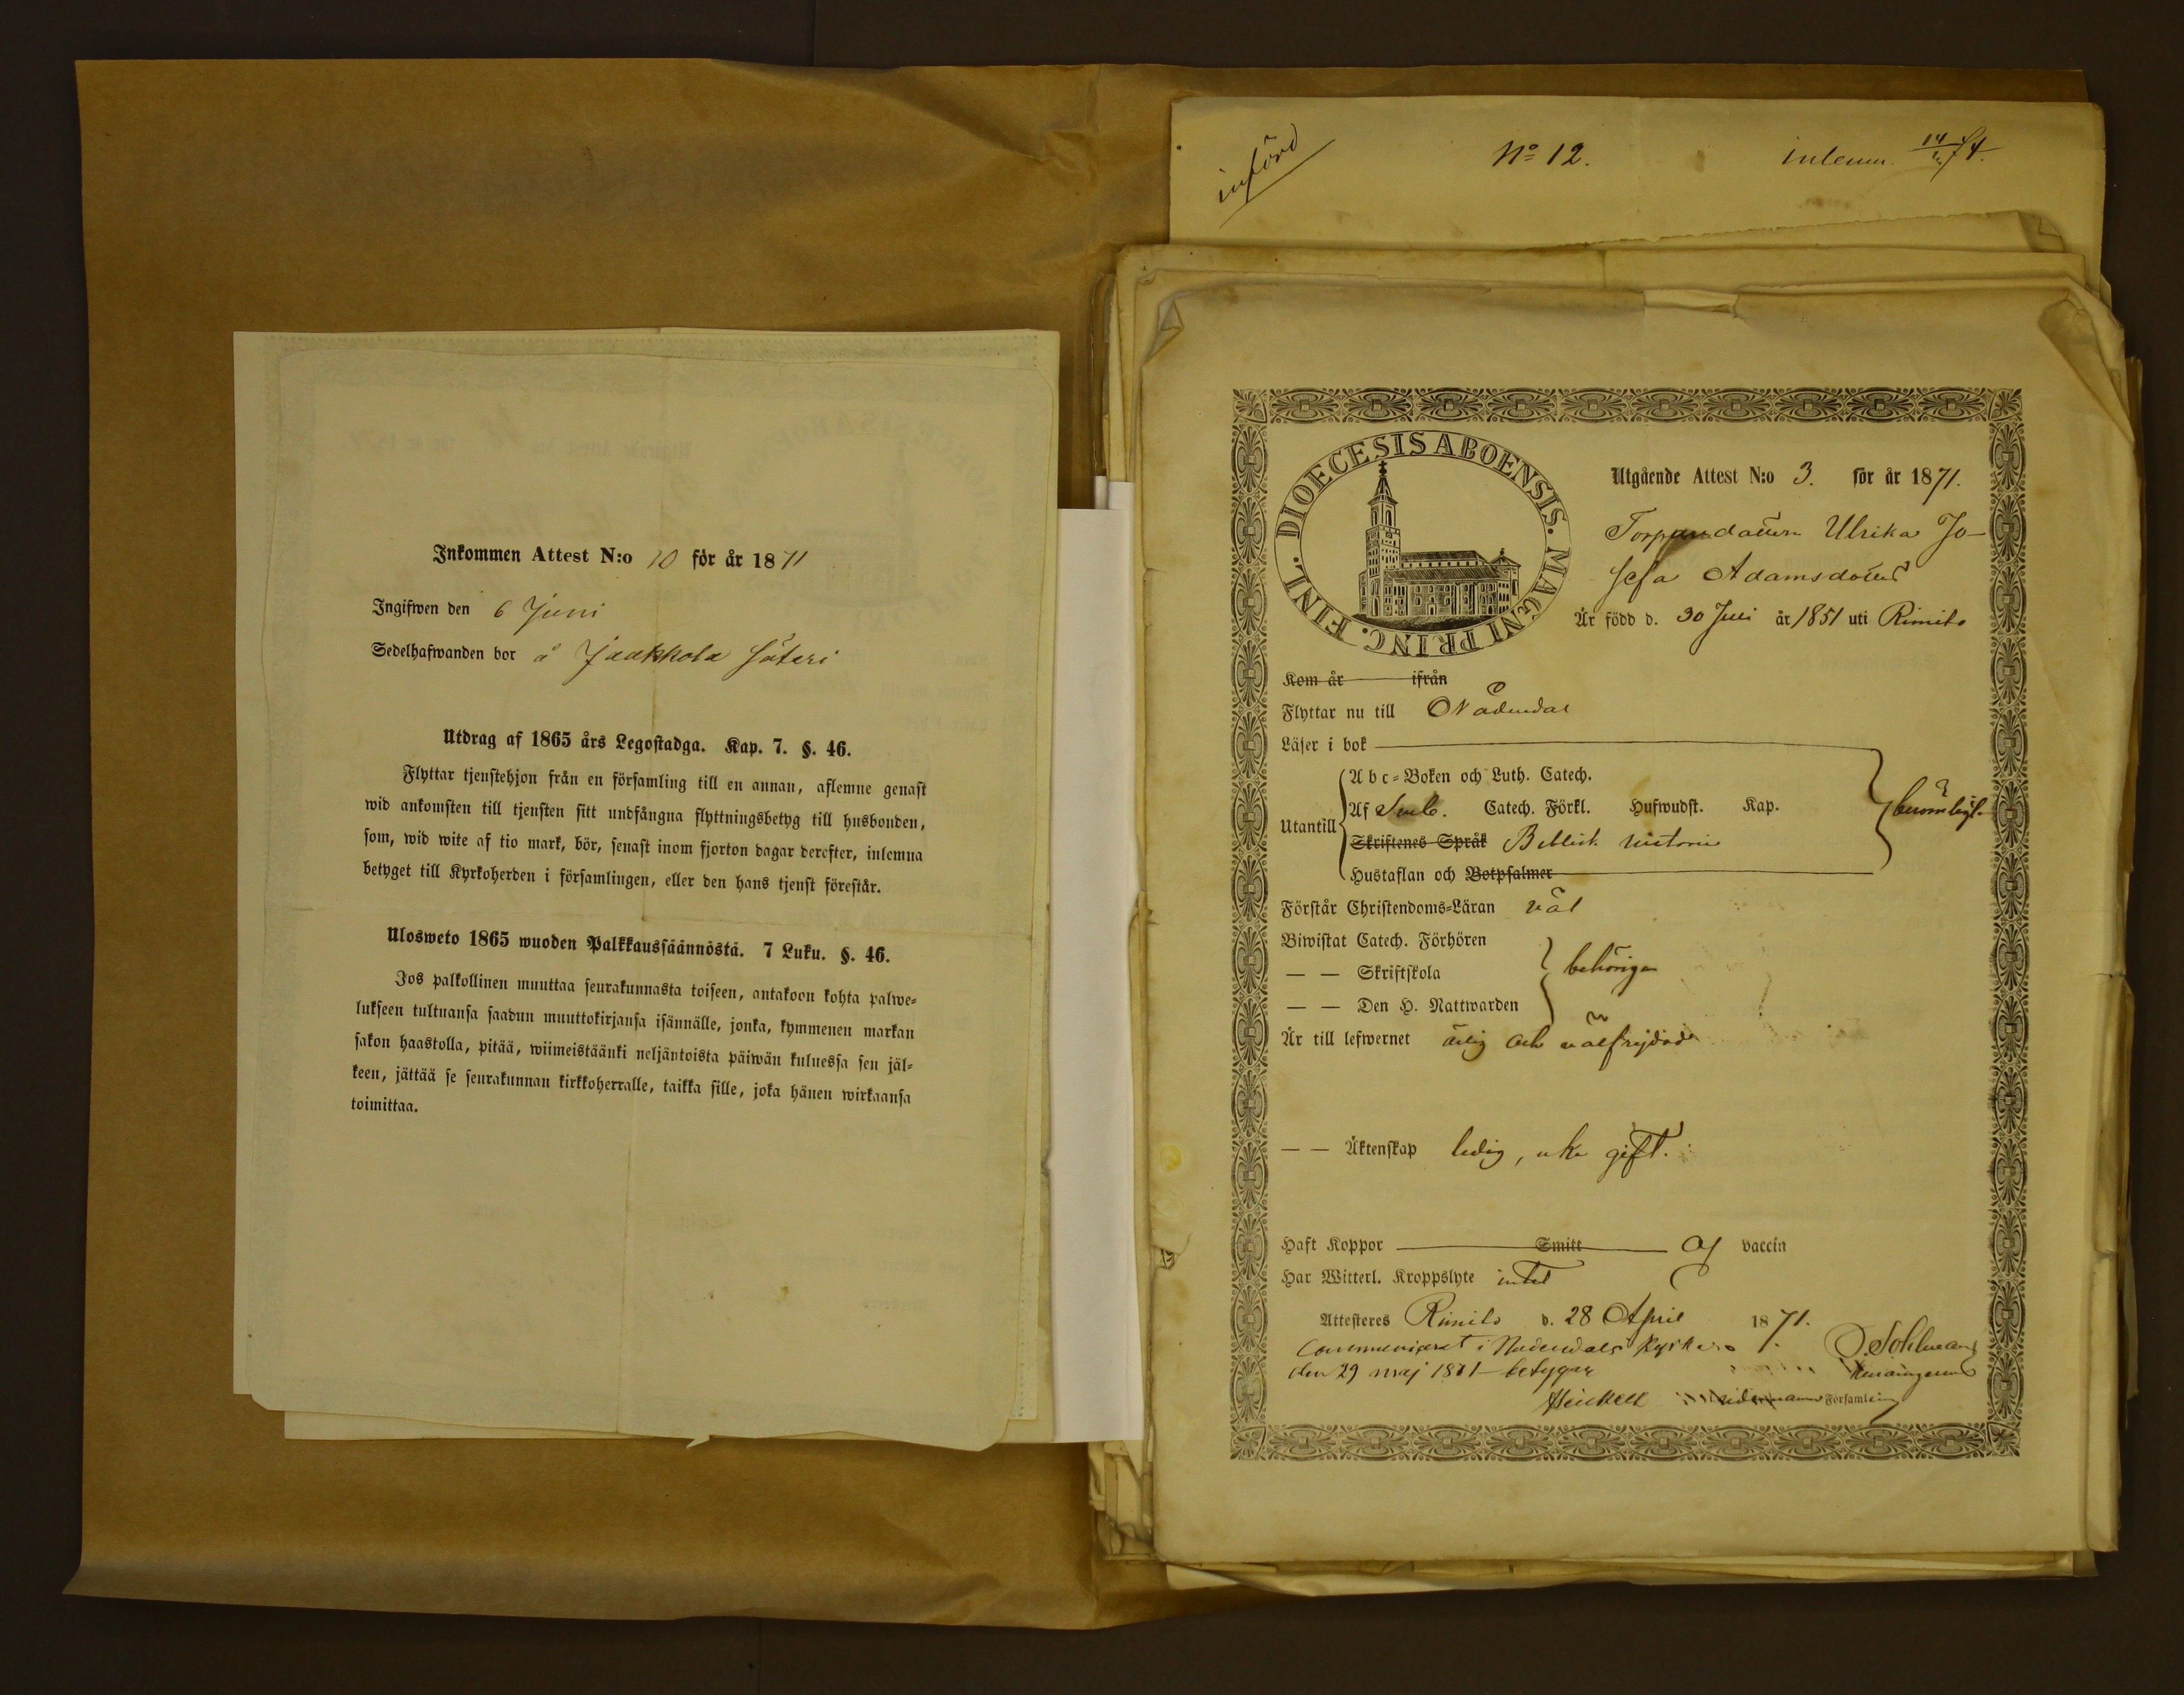 Inkommen Attest N:o 10 för år 1871
Ingifwen den 6 Juni
Sedelhafwanden bor å Jaakkola Säteri
Utdrag af 1865 års Legostadga. Kap. 7. §. 46.
Flyttar tjenstehjon från en församling till en annan, aflemne genast
wid ankomsten till tjensten sitt undfångna flyttningsbetyg till husbonden,
som, wid wite af tio mark, bör, senast inom fjorton dagar derefter, inlemna
betyget till Kyrkoherden i församlingen, eller den hans tjenst förestår.
Ulosweto 1865 wuoden Palkkaussäännöstä. 7 Luku. §. 46.
Jos palkollinen muuttaa seurakunnasta toiseen, antakoon kohta palwe=
lukseen tultuansa saadun muuttokirjansa isännälle, jonka, kymmenen markan
sakon haastolla, pitää, wiimeistäänki neljäntoista päiwän kuluessa sen jäl=
keen, jättää se seurakunnan kirkkoherralle, taikka sille, joka hänen wirkaansa
toimittaa.
införd
No 12.
inlemn. 14/74.
DIOECESIS ABOENSIS. MAGNI PRINC. FINL.
Utgående Attest N:o 3. för år 1871.
Torparedottern Ulrika Jo-
sefa Adamsdotter
Är född d. 30 Juli år 1851 uti Rimito
Kom år ifrån
Flyttar nu till Nådendal
Läser i bok
Abc=Boken och Luth. Catech.
Utantill Af Symb. Catech. Förkl. Hufwudst. Kap. berömligt
Skriftenes Språk Biblisk historie
Hustaflan och Botpsalmer
Förstår Christendoms=Läran väl
Biwistat Catech. Förhören
— — Skriftskola behörigen
— — Den H. Nattwarden
Är till lefwernet ärlig och välfrejdad
— — Äktenskap ledig, icke gift.
Haft Koppor Smitt af vaccin
Har Witterl. Kroppslyte intet
Attesteres Rimito d. 28 April 1871.
Communicerat i Nådendals kyrka
den 29 maj 1871 betygar
Heickell
Församling